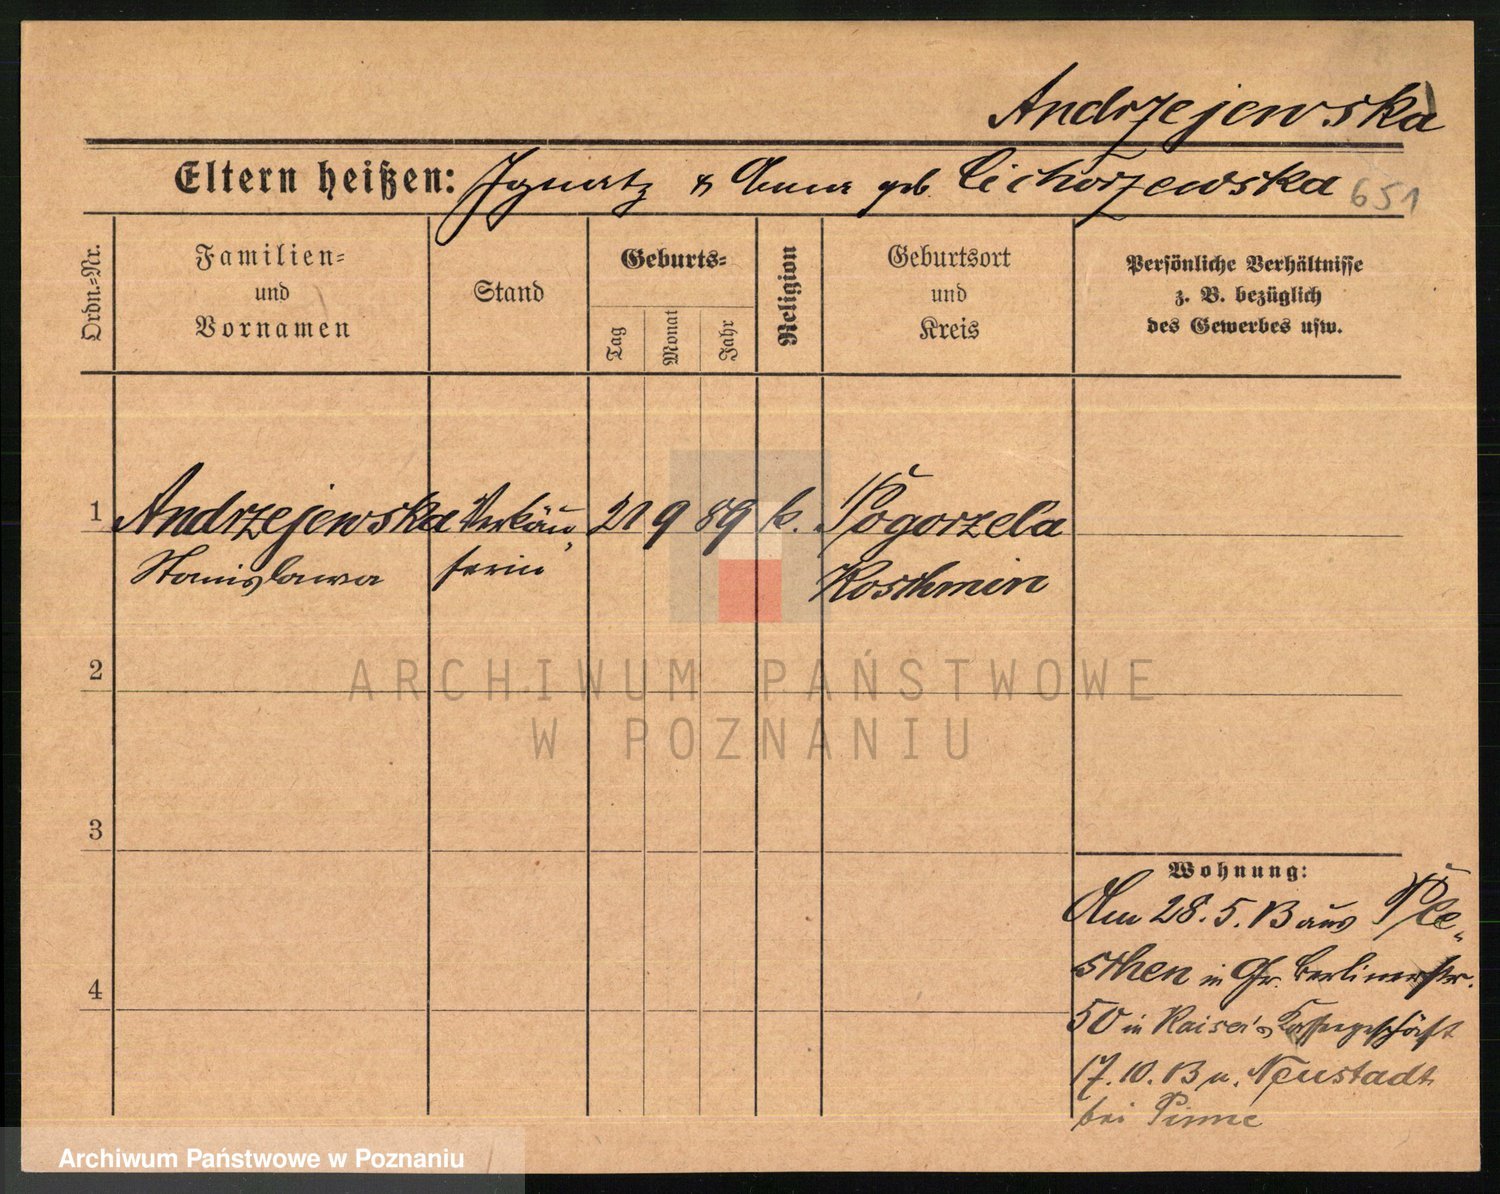 Andrzejewska
Eltern heißen: Ignatz & Anna geb. Cichorzewska 651
Ordn.-Nr.
Familien-
und
Vornamen
Stand
Geburts-
Tag
Monat
Jahr
Religion
Geburtsort
und
Kreis
Persönliche Verhältnisse
z. B. bezüglich
des Gewerbes usw.
1 Andrzejewska Verkäu- 21 9 89 k. Pogorzela
Stanislawa ferin Koschmin
2
ARCHIWUM PAŃSTWOWE
W POZNANIU
3
Wohnung:
Am 28. 5. 13 aus Ple-
schen in Gr. Berlinerstr.
4
50 in Kaiser's Kaffeegeschäft
17. 10. 13 n. Neustadt
bei Pinne
Archiwum Państwowe w Poznaniu